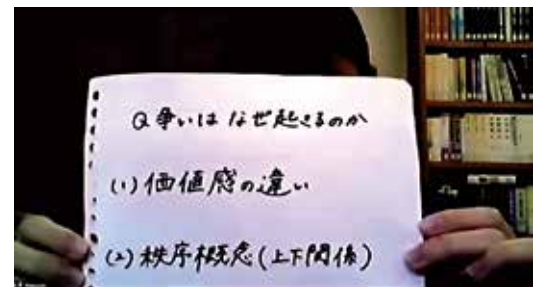 Q 争いはなぜ起こるのか
(1) 価値感の違い
(2) 秩序概念(上下関係)